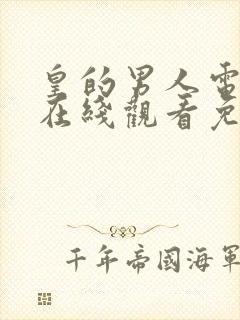 皇的男人電
在綫觀看免
千年帝國海軍